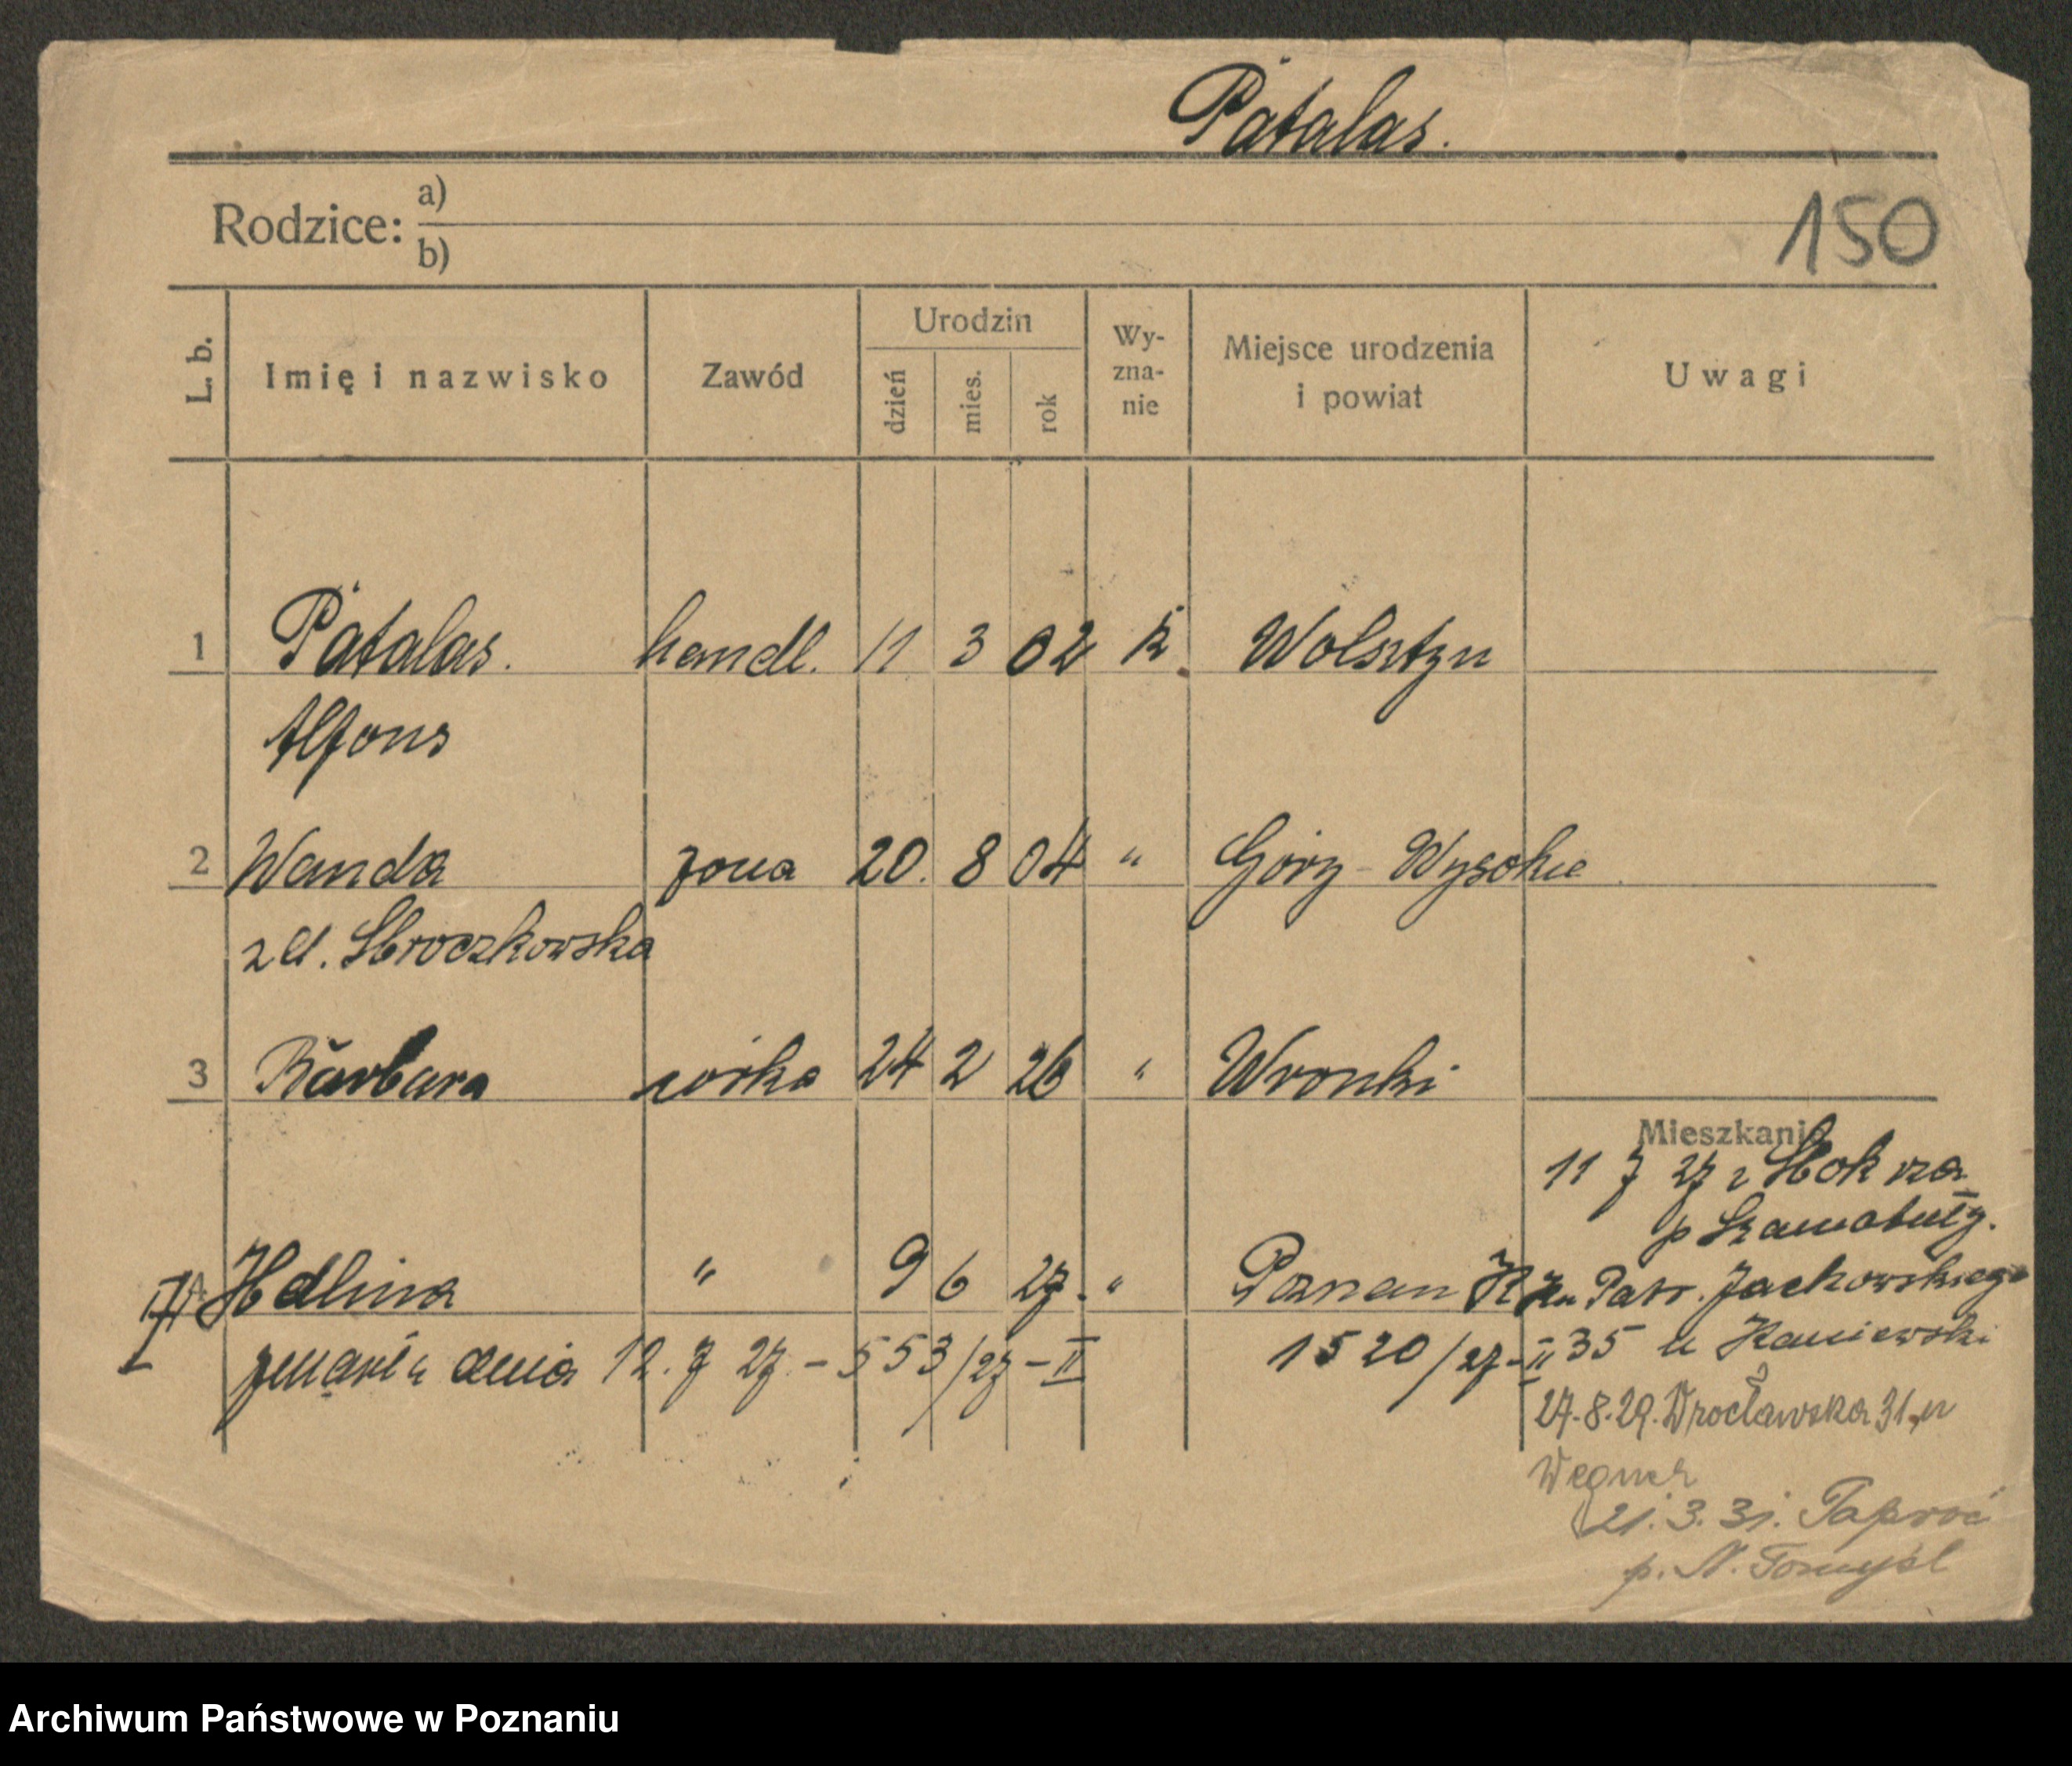 Patalas.
150
Rodzice: a)
b)
L. b. Imię i nazwisko Zawód Urodzin dzień mies. rok Wy-zna-nie Miejsce urodzenia i powiat Uwagi
1 Patalas. handl. 11 3 02 k Wolsztyn
Alfons
2 Wanda żona 20. 8 04 " Góry-Wysokie
z d. Skroczkowska
3 Barbara córka 24 2 26 " Wronki
Mieszkanie
11 7 27 z
p Szamotuły.
Halina " 9 6 27. " Poznan Patr. Jackowskiego
zmarła dnia 12. 7 27. - 553/27 - II 1520/27-II 35 u Kaniewski
27.8.29. Wrocławska 31, u
Wegner
21.3.31. Paproć
p. N. Tomyśl
Archiwum Państwowe w Poznaniu